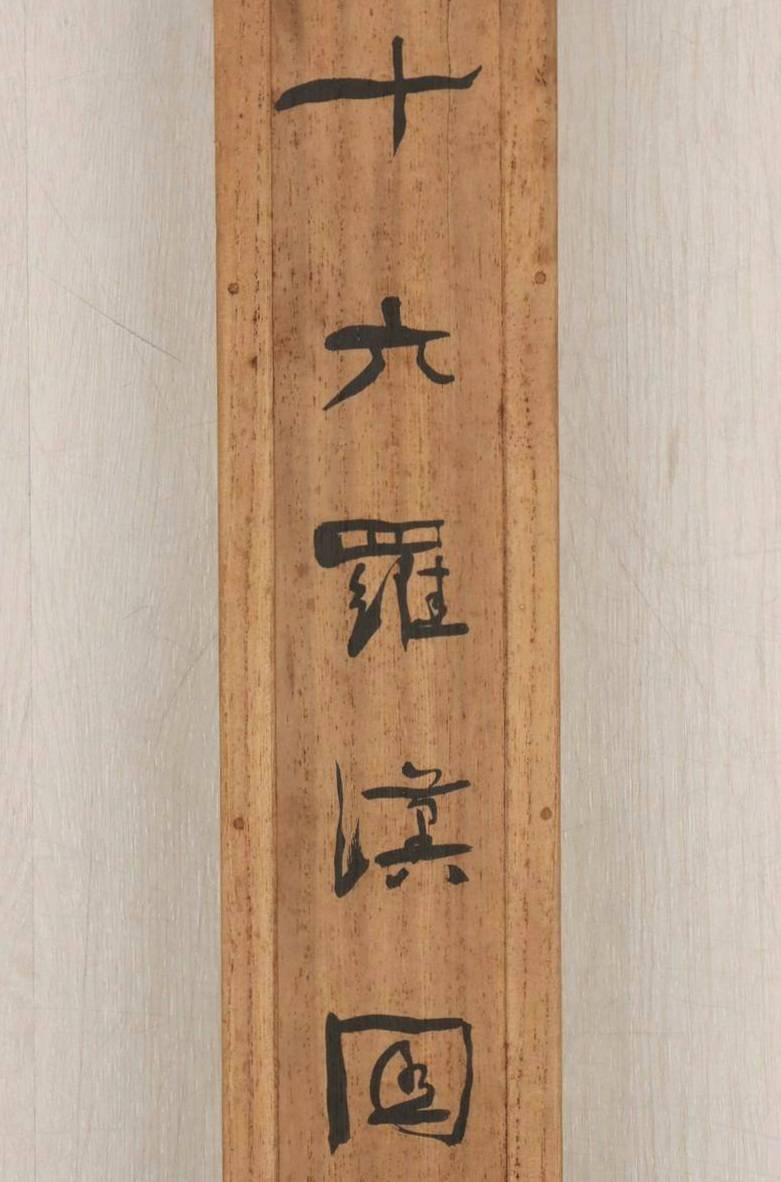 十六羅漢圖